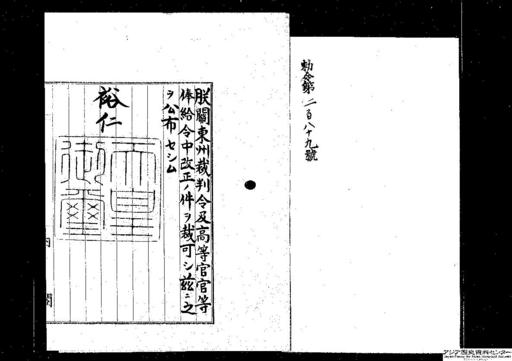 勅令第二百八十九號
朕關東州裁判令及高等官官等
俸給令中改正ノ件ヲ裁可シ茲ニ之
ヲ公布セシム
裕仁
天皇
御璽
内閣
アジア歴史資料センター